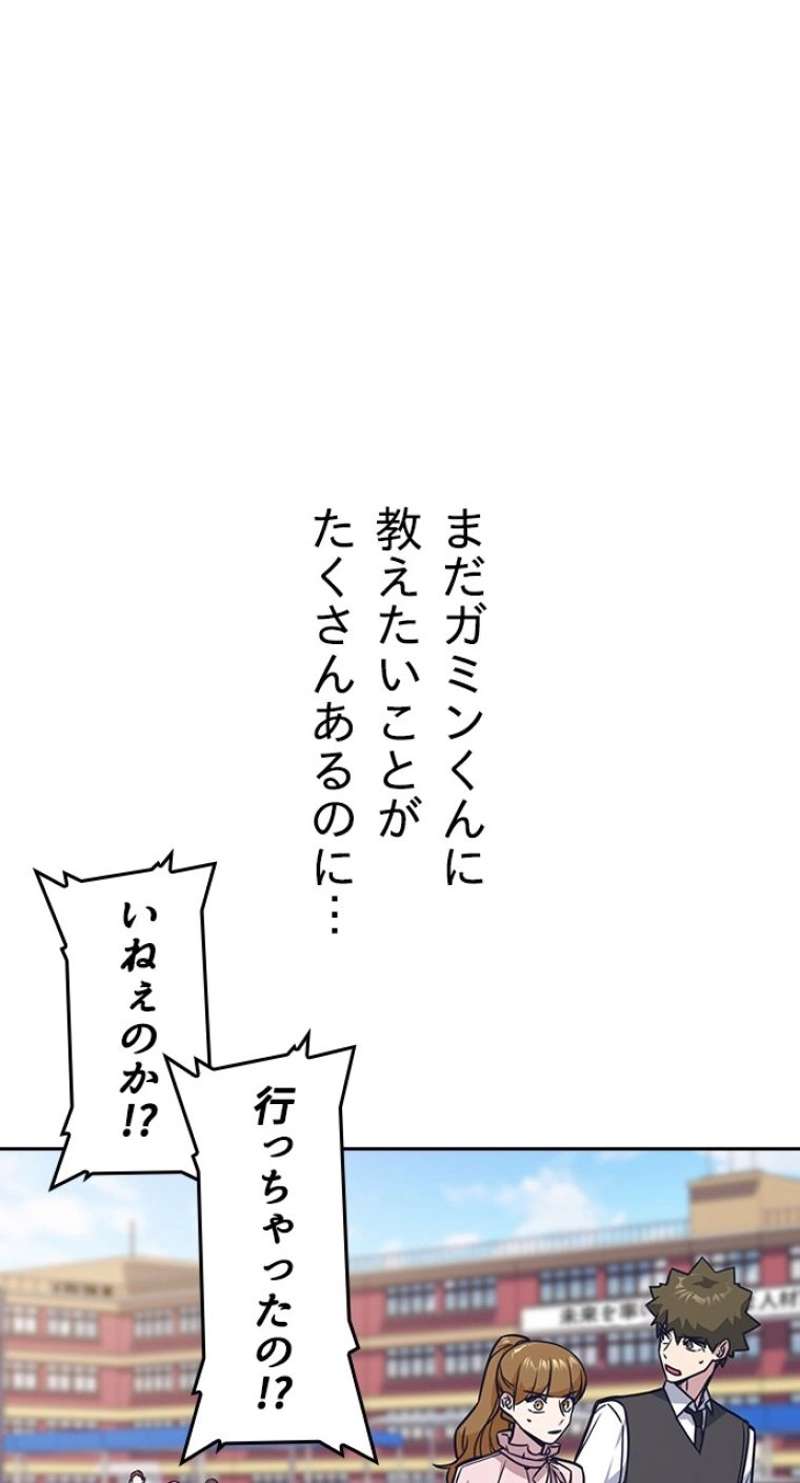 まだガミンくんに
教えたいことが
たくさんあるのに…
いねぇのか!?
行っちゃったの!?
未来を
人材